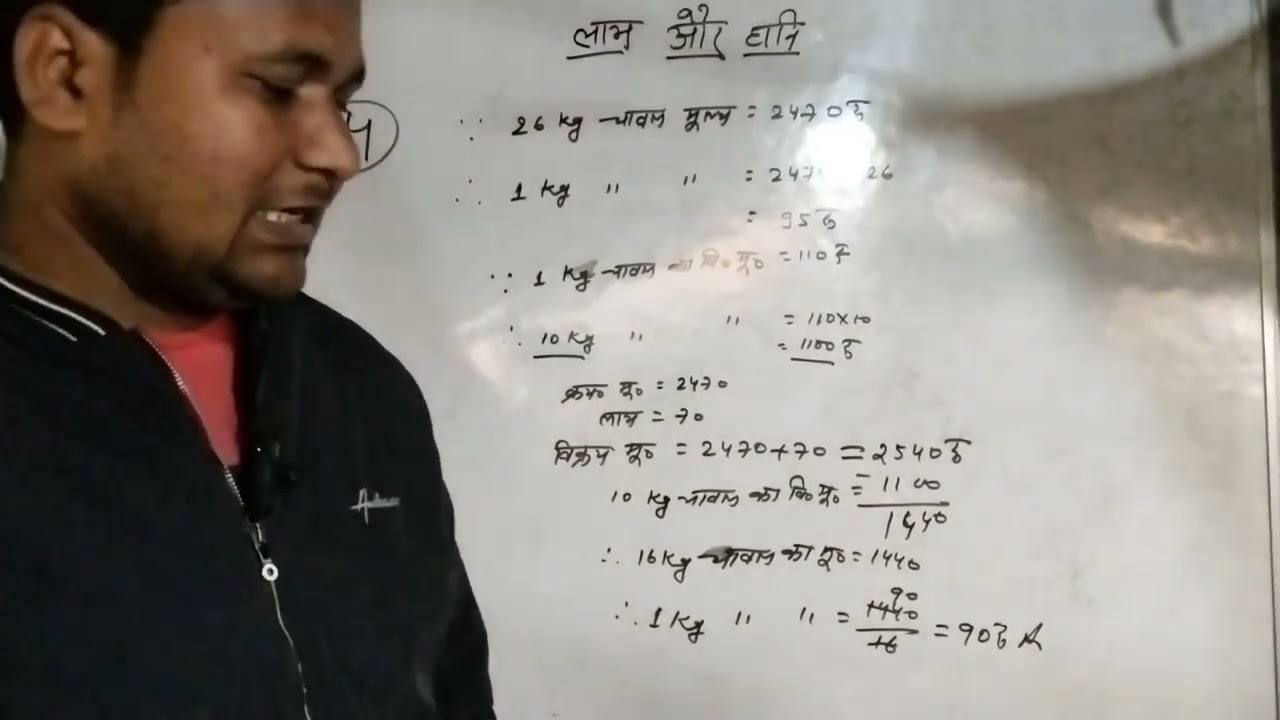 लाभ और हानि
4
∵ 26 kg चावल मूल्य = 2470 रु
∴ 1 kg " " = 247 26
= 95 रु
∵ 1 kg चावल का वि० मू० = 110 रु
∴ 10 kg " " = 110×10
= 1100 रु
क्रय० मू० = 2470
लाभ = 70
विक्रय मू० = 2470+70 = 2540 रु
10 kg चावल का वि० मू० = - 1100
1440
∴ 16 kg चावल का मू० = 1440
90
∴ 1 kg " " = 1440/16 = 90 रु A